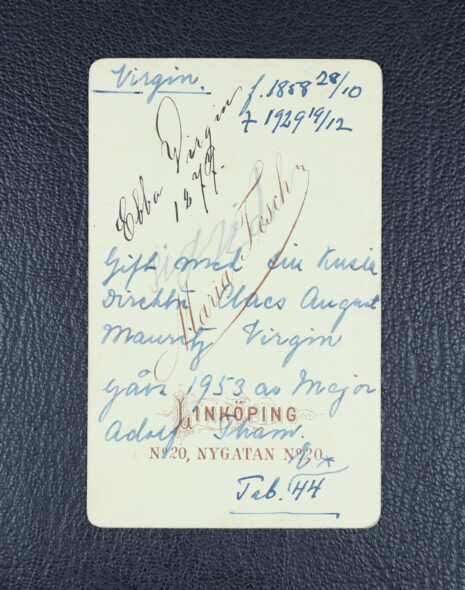 Virgin.
f. 1858 28/10
† 1929 19/12
Ebba Virgin
1877.
Maria Tesch
Gift med sin kusin
Direktör Claes August
Mauritz Virgin
Gåva 1953 av Major
LINKÖPING
Adolf Tham.
No 20, NYGATAN No 20.
Tab. 44